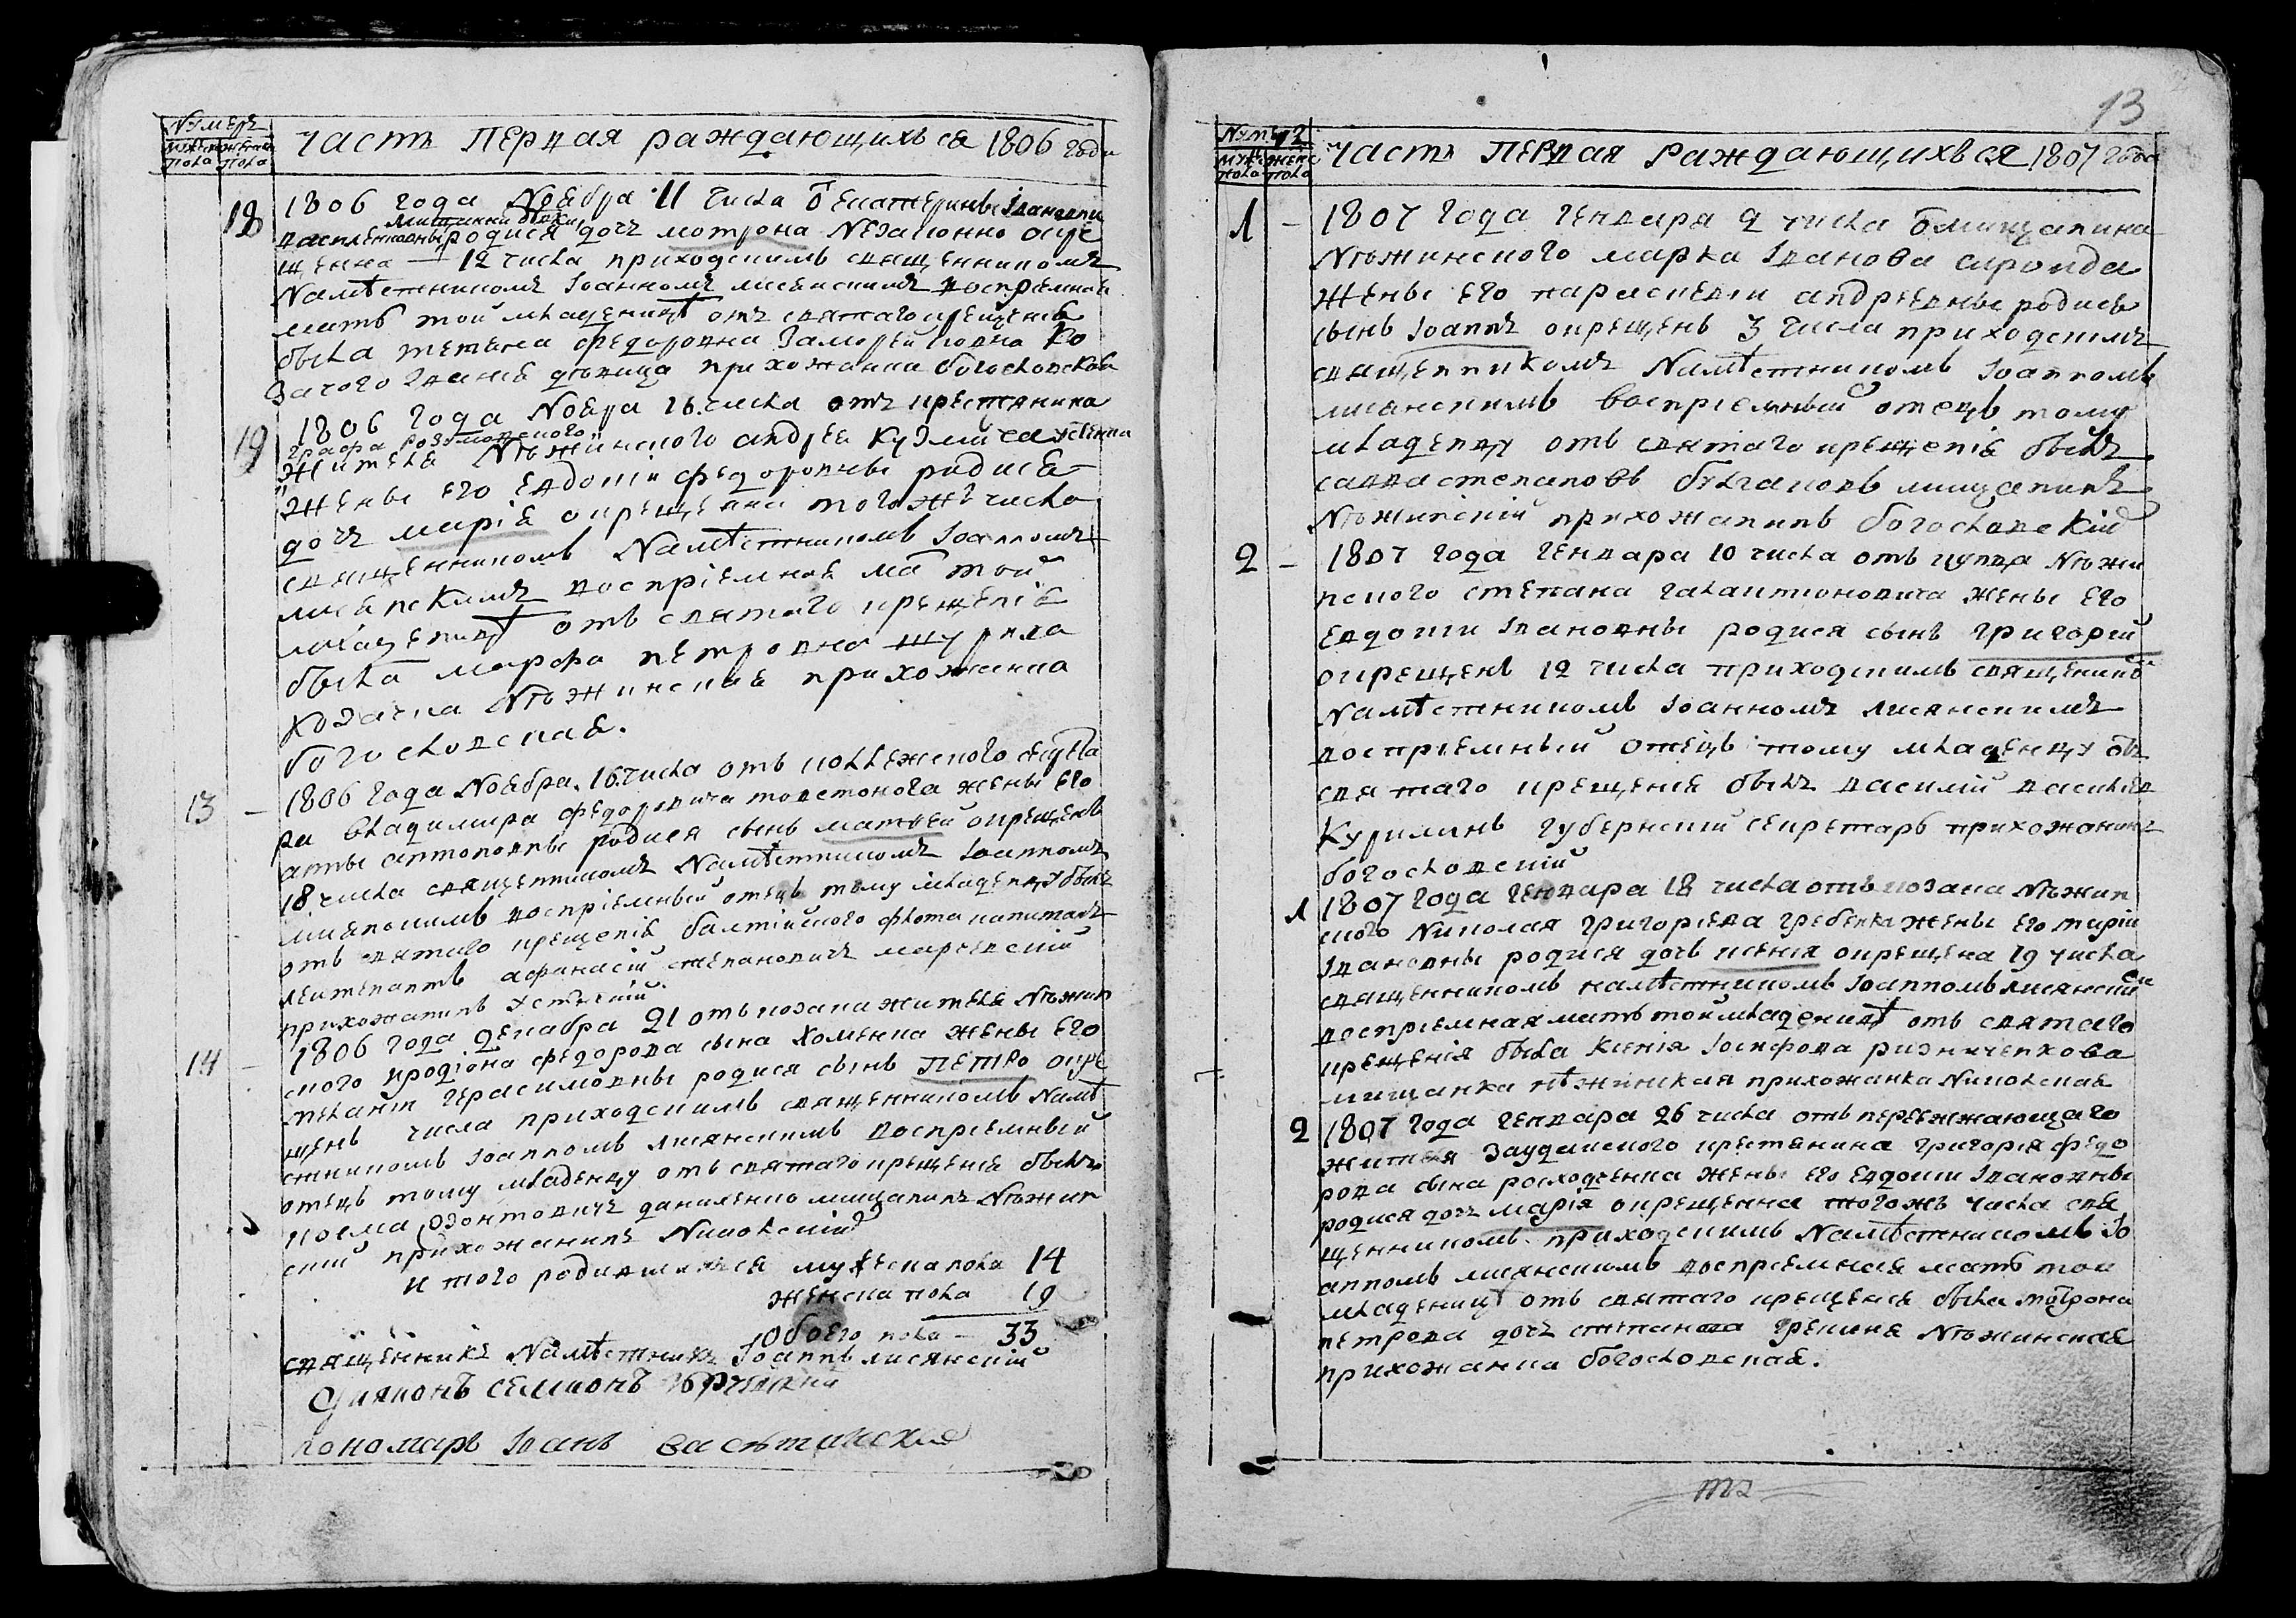 Нумеръ
мужеска пола женска пола
часть Первая раждающихься 1806 года
18 1806 года Ноября 11 числа Ѿ Екатерины Iвановны
мищанки
родися дочъ мотрона Незаконно окре
щенна 12 числа приходскимъ священникомъ
Намѣстникомъ Iоанномъ лисянскимъ воспрiемная
мать той младеницѣ отъ святаго крещенiя
была татияна федоровна
девица прихожанка богословская
19 1806 года Ноября 16 числа отъ крестянина
графа розумовского
жителя Нѣжинского андрея Кузмича
жены его Евдокiи федоровны родися
дочъ марiя окрещена того жъ числа
священникомъ Намѣстникомъ Iоанномъ
лисянскимъ воспрiемная ма той
младеницѣ отъ святаго крещенiя
была марфа петровна
козачка Нѣжинская прихожанка
богословская.
13 – 1806 года Ноября 16 числа отъ коллежского секрета
ра владимира федоровича толстонога жены его
анны антоновны родися сынъ матвей окрещенъ
18 числа священникомъ Намѣстникомъ Iоанномъ
лисянскимъ воспрiемный отецъ тому младенцу былъ
отъ святаго крещенiя балтiйского флота капитанъ
леитенантъ афанасiй степановичъ
прихожанинъ
14 – 1806 года Декабря 21 отъ козака жителя Нѣжин
ского иродiона федорова сына хоменка жены его
герасимовны родися сынъ Петро окре
щенъ числа приходскимъ священникомъ Намѣ
стникомъ Iоанномъ лисянскимъ воспрiемный
отецъ тому младенцу отъ святаго крещенiя былъ
козма даниленко мищанинъ Нѣжин
скiй прихожанинъ Николскiй
и того родившихся мужеска пола 14
женска пола 19
Обоего пола – 33
священникъ Намѣстникъ Iоаннъ лисянскiй
Дияконъ семионъ
пономаръ Iванъ
13
Нумеръ
мужеска пола женска пола
часть Первая Раждающихься 1807 года
1 – 1807 года Генваря 2 числа Ѿ мищанина
Нѣжинского марка Iванова
жены его параскевiи андреевны родися
сынъ Iоаннъ окрещенъ 3 числа приходскимъ
священникомъ Намѣстникомъ Iоанномъ
лисянскимъ воспрiемный отецъ тому
младенцу отъ святаго крещенiя былъ
савва степановъ мищанинъ
Нѣжинскiй прихожанинъ богословскiй
2 – 1807 года Генваря 10 числа отъ купца Нѣжи
нского степана галактионовича жены его
Евдокiи Iвановны родися сынъ григорiй
окрещенъ 12 числа приходскимъ священик
Намѣстникомъ Iоанномъ лисянскимъ
воспрiемный отецъ тому младенцу отъ
святаго крещенiя былъ василiй василiев
Курилинъ губернскiй секретаръ прихожанинъ
богословскiй
1 1807 года Генваря 18 числа отъ козака Нѣжин
ского Николая григорiева гребенка жены его марiи
Iвановны родися дочъ ксенiя окрещена 19 числа
священникомъ намѣстникомъ Iоанномъ лисянским
воспрiемная мать той младеницѣ отъ святаго
крещенiя была ксенiя Iосифова ризниченкова
мищанка нѣжинская прихожанка Николская
2 1807 года Генвара 26 числа отъ переежжающаго
жителя крестянина григорiя федо
рова сына жены его Евдокiи Iвановны
родися дочъ марiя окрещенна того жъ числа свя
щенникомъ приходскимъ Намѣстникомъ Iо
анномъ лисянскимъ воспрiемная мать той
младеницѣ отъ святаго крещенiя была мотрона
петрова дочъ Нѣжинская
прихожанка богословская.